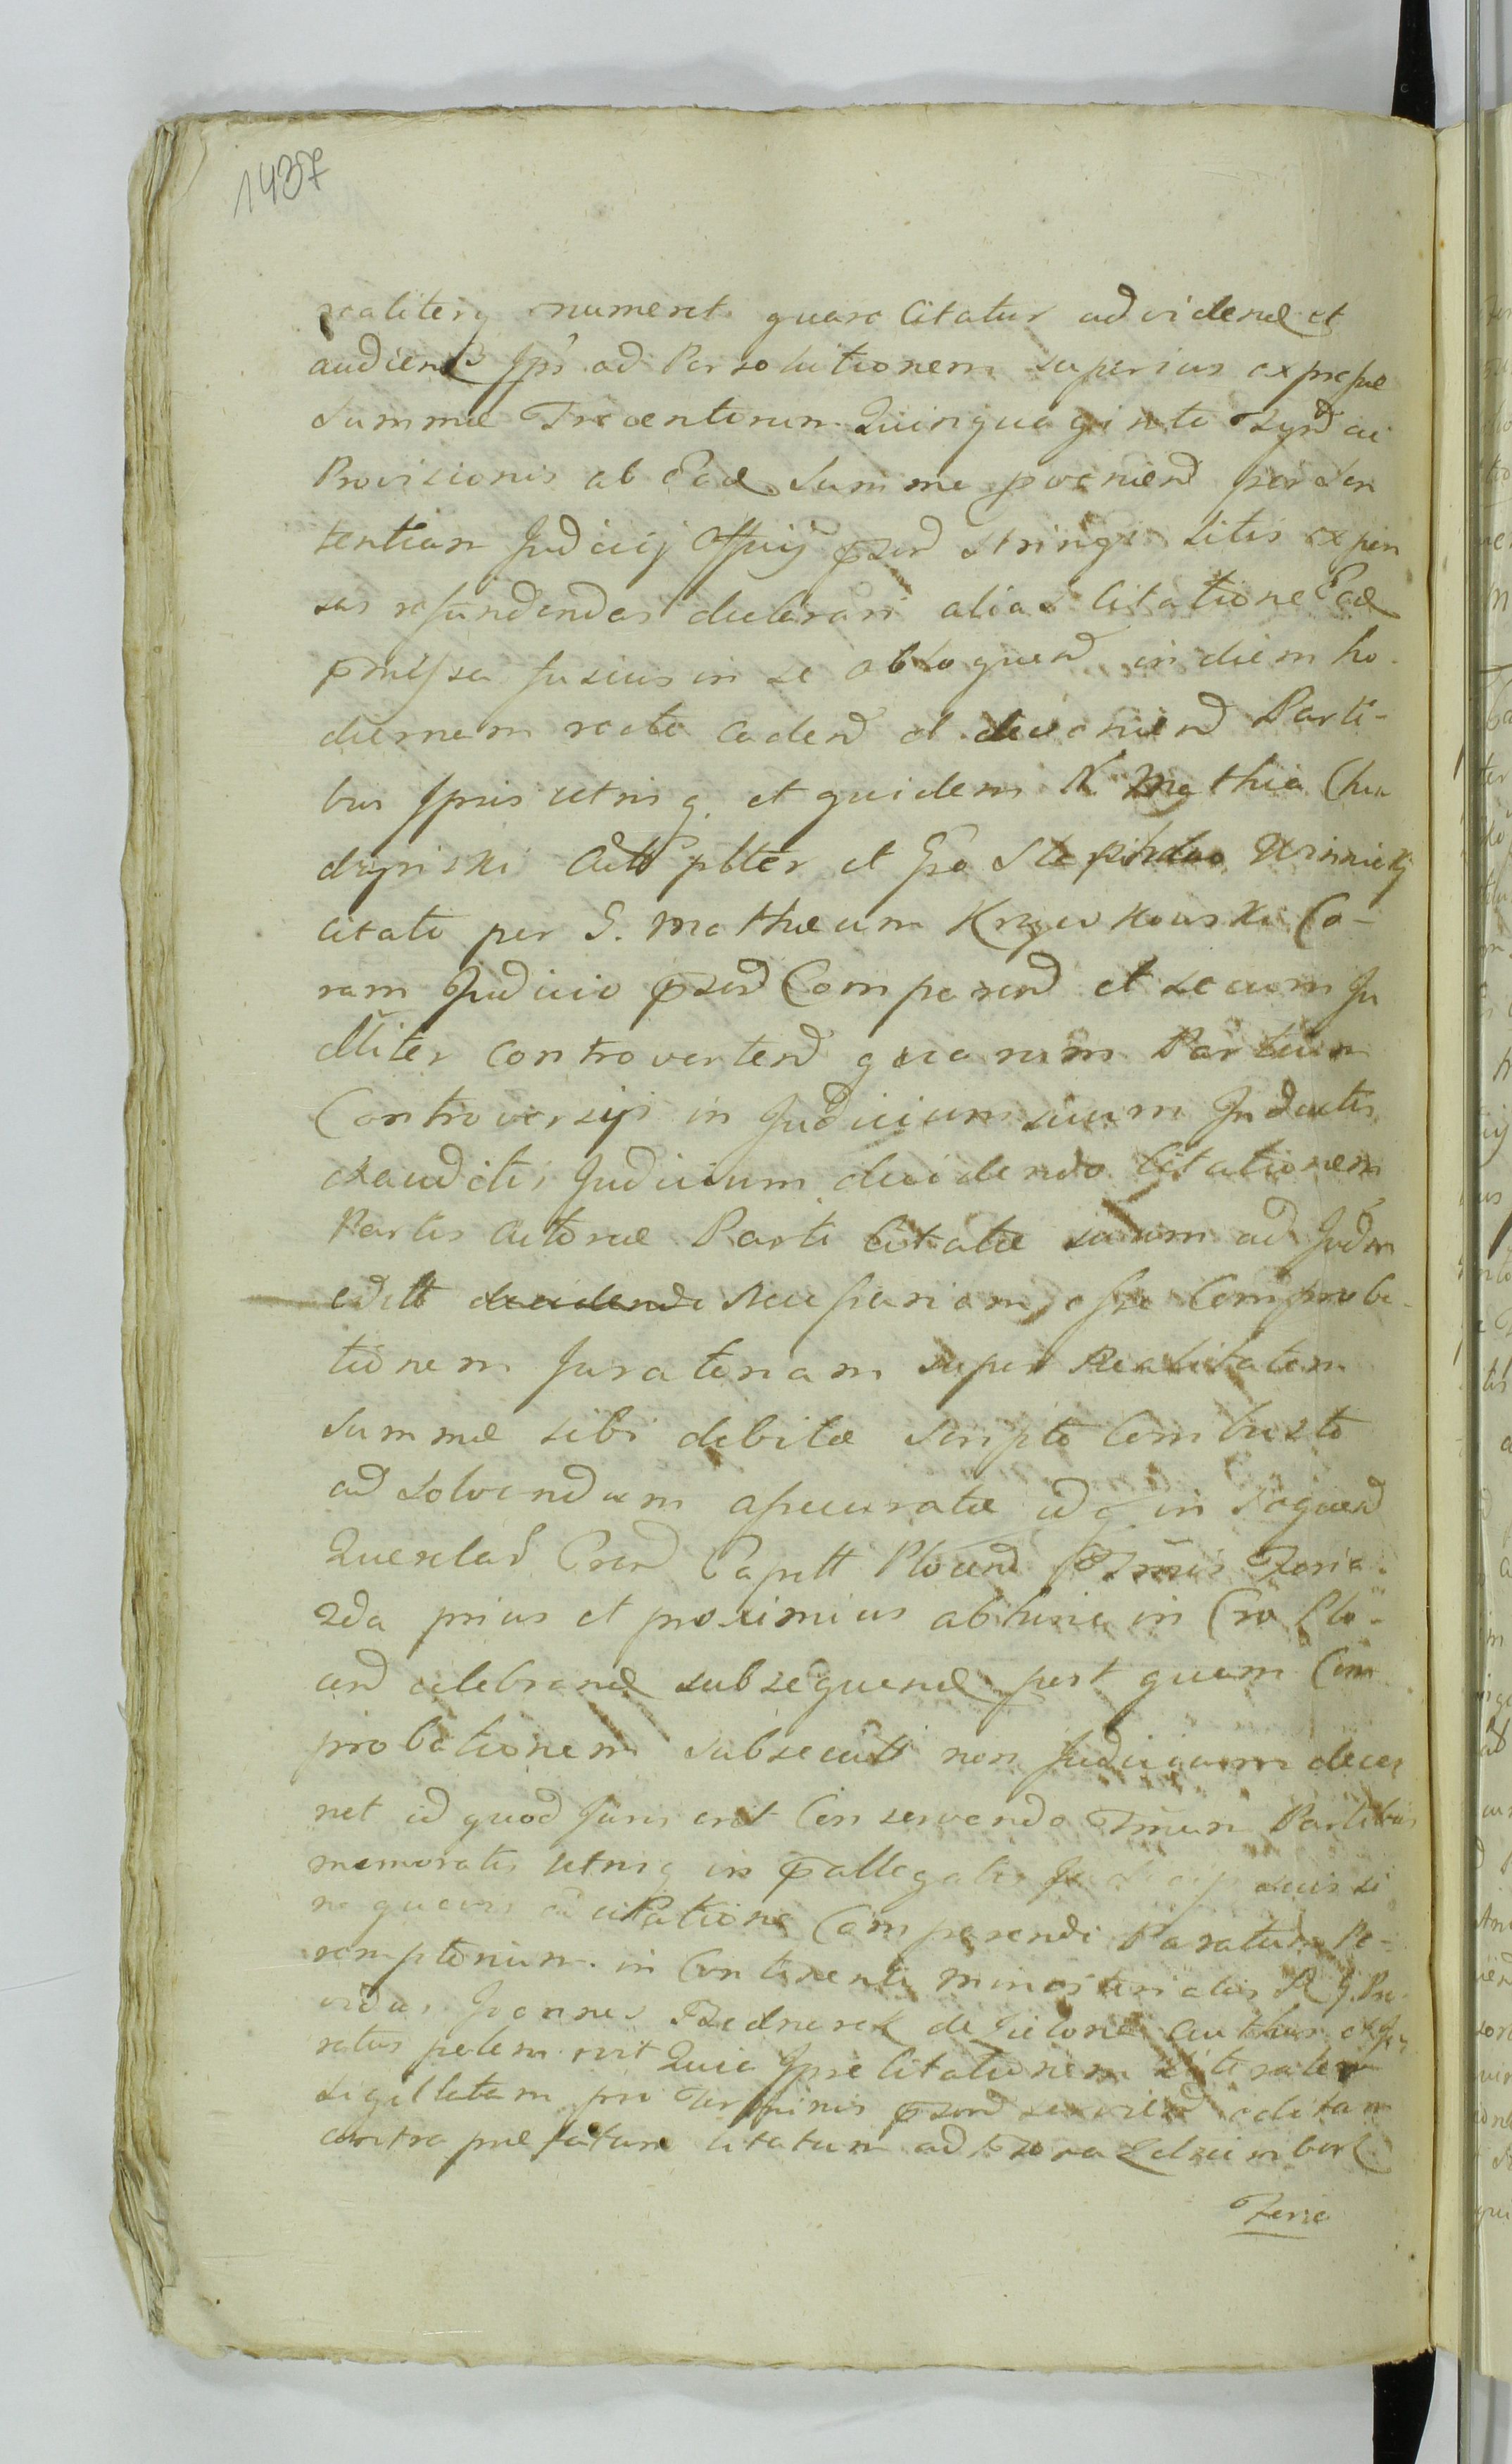 1437
realiterq numeret quare Citatur ad vidend et
audiend Ipś ad Persolutionem superius expressæ
Summæ Trecentorum Quinquaginta Tynf ac
Provisionis ab Ead Summa provenien per Sen
tentiam Judicij Offij pzen stringi litis expen
sas refundendas declarari alias Citatione Ead
præmissa fusius in se obloquen in diem ho-
diernam recte caden et devenien Parti-
bus Ipsis utrisq et quidem N. Mathia Chu
dzynski Actō plter et Gso Stephano Winnicki
citato per G. Mathæum Krzywkowski Co-
ram Judicio pzen Comparen et secum Ju
dlliter controverten quarum Partium
Controversijs in Judicium suum Inductis
exauditis Judicium decidendo Citationem
Partis Actoreæ Parti Citatæ suum ad Judm
edtt decidendo necessariam esse Comproba-
tionem Juratoriam super Realitatem
Summæ sibi debitæ scripto Combusto
ad solvendum assecuratæ idq in sequen
Querelas Cren Capett Plocen Trmis Feria
2da prius et proximius abhinc in Cro Plo-
cen celebrand subsequend post quam Com
probationem subsecutt non Judicium decer
net id quod Juris erit Conservando Tmum Partibus
memoratis utrisq in pallegatis Judicijs suis si
ne quavis adcitatione Comparendi Paratum Pe-
remptorium. in Continenti ministerialis R G. Pro-
vidus Joannes Bednarek de Jielona authen et Ju
ratus palam rvit Quia Ipse Citationem literalem
sigillatam pro Terminis pzen servien editam
contra præfatum citatum ad Zdziembor
Feria